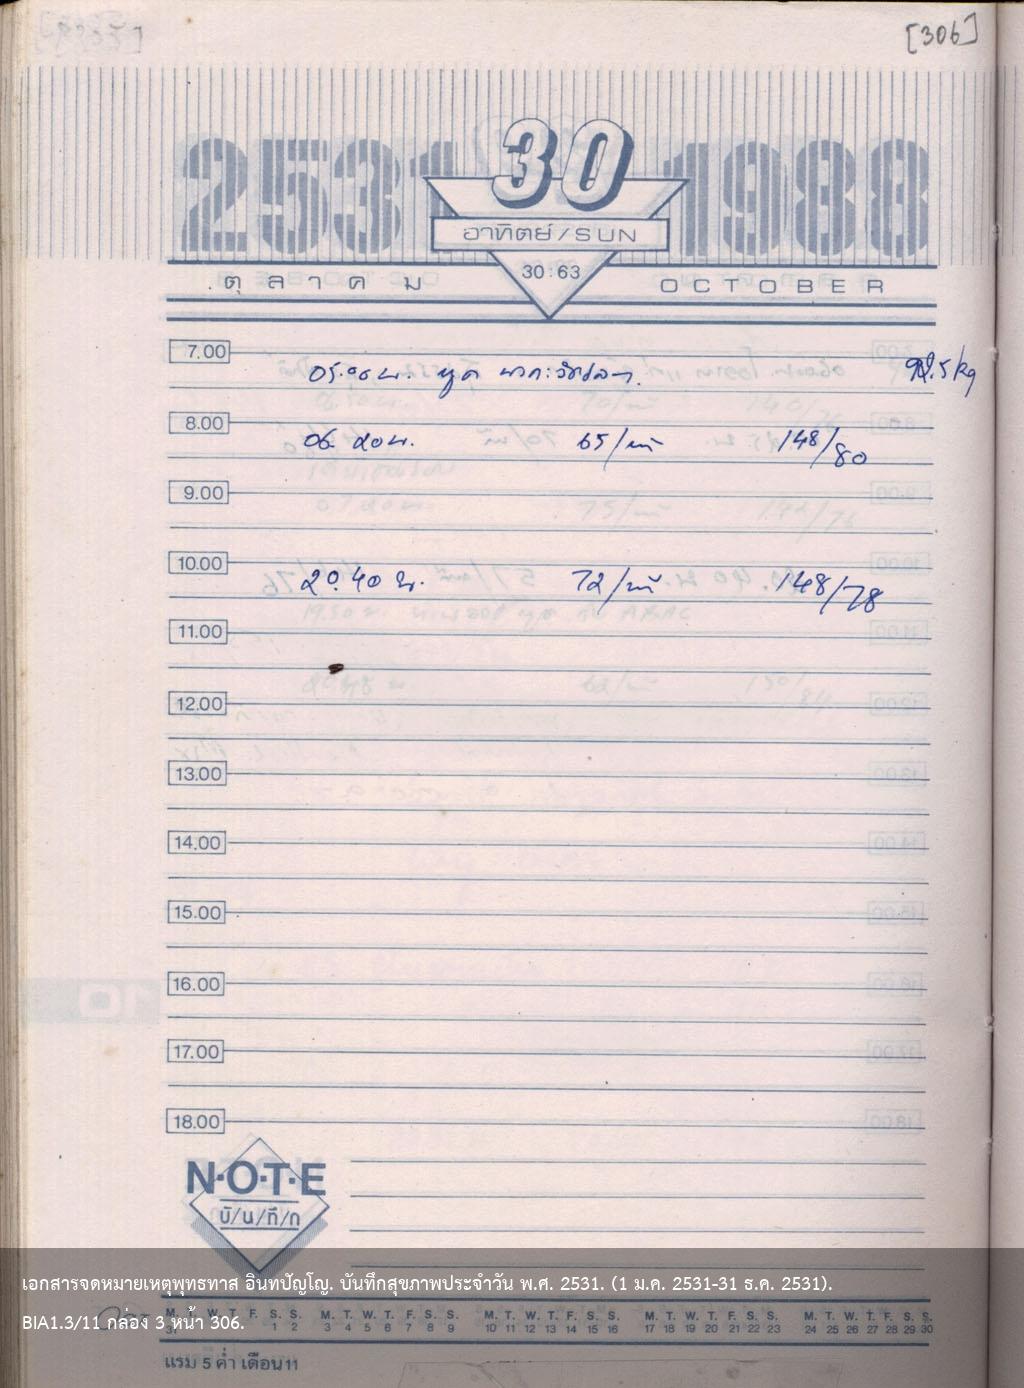 [306]
2531 30 1988
อาทิตย์/SUN
30:63
ตุลาคม OCTOBER
7.00
05.00 น. พูด 92.5 kg
8.00
06.20 น. 65/นที 148/80
9.00
10.00
20.40 น. 72/นที 148/78
11.00
12.00
13.00
14.00
15.00
16.00
17.00
18.00
N·O·T·E
บั/น/ทึ/ก
เอกสารจดหมายเหตุพุทธทาส อินทปัญโญ. บันทึกสุขภาพประจำวัน พ.ศ. 2531. (1 ม.ค. 2531-31 ธ.ค. 2531).
M. T. W. T. F. S. S. M. T. W. T. F. S. S. M. T. W. T. F. S. S. M. T. W. T. F. S. S. M. T. W. T. F. S. S.
31 1 2 3 4 5 6 7 8 9 10 11 12 13 14 15 16 17 18 19 20 21 22 23 24 25 26 27 28 29 30
BIA1.3/11 กล่อง 3 หน้า 306.
แรม 5 ค่ำ เดือน 11